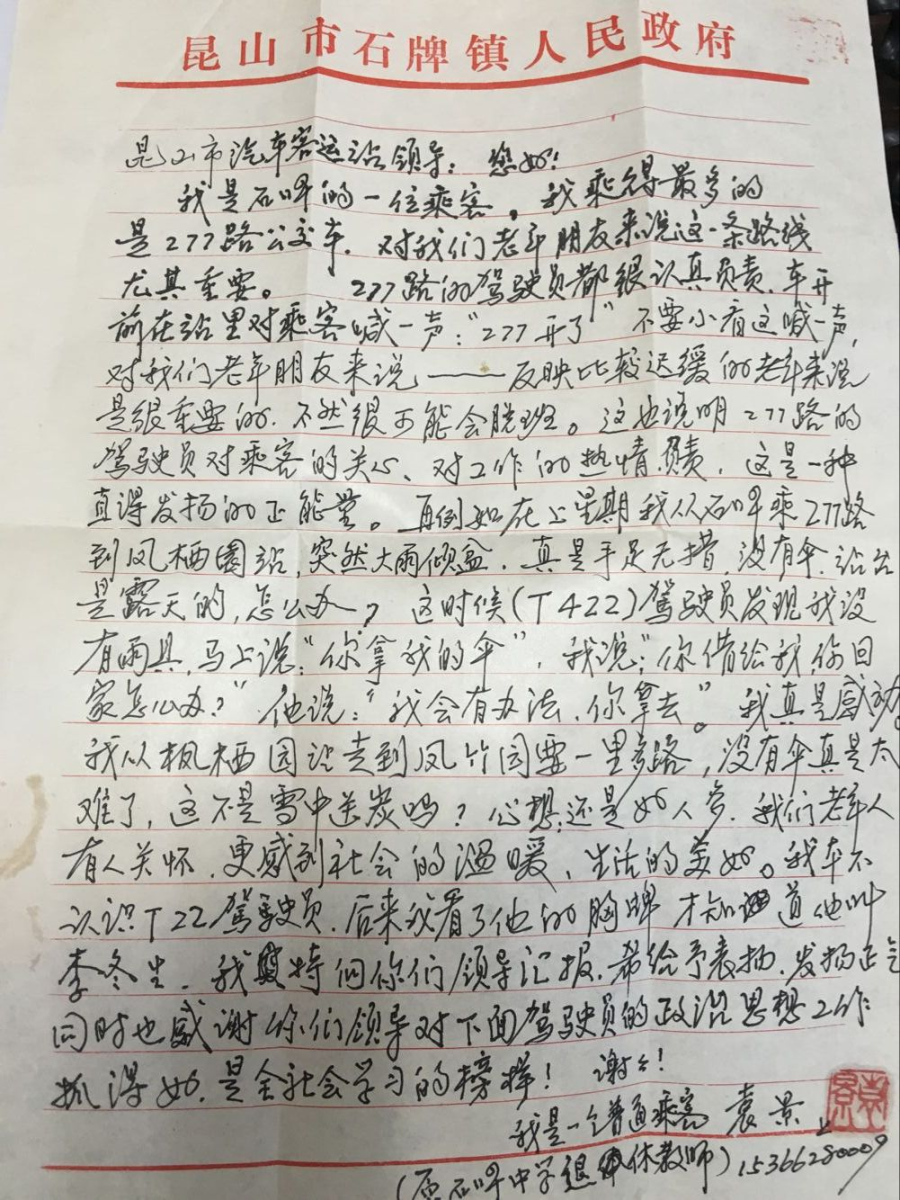 昆山市石牌镇人民政府
昆山市汽车客运站领导：您好！
我是石牌的一位乘客，我乘得最多的
是277路公交车，对我们老年朋友来说这一条路线
尤其重要。277路的驾驶员都很认真负责，车开
前在站里对乘客喊一声："277开了"不要小看这喊一声，
对我们老年朋友来说——反映比较迟缓的老年来说
是很重要的，不然很可能会脱班。这也说明277路的
驾驶员对乘客的关心、对工作的热情负责，这是一种
直得发扬的正能量。再例如在上星期我从石牌乘277路
到凤栖园站，突然大雨倾盆，真是手足无措，没有伞，站台
是露天的，怎么办？这时候(T422)驾驶员发现我没
有雨具，马上说："你拿我的伞"，我说："你借给我你回
家怎么办？"他说："我会有办法，你拿去"。我真是感动。
我从枫栖园站走到凤竹园要一里多路，没有伞真是太
难了，这不是雪中送炭吗？心想还是好人多，我们老年人
有人关怀，更感到社会的温暖、生活的美好。我本不
认识T22驾驶员，后来我看了他的胸牌才知道他叫
李冬生，我特向你们领导汇报，希给予表扬，发扬正气
同时也感谢你们领导对下面驾驶员的政治思想工作
抓得好，是全社会学习的榜样！谢谢！
我是一个普通乘客 袁景
(原石牌中学退休教师) 15366280009